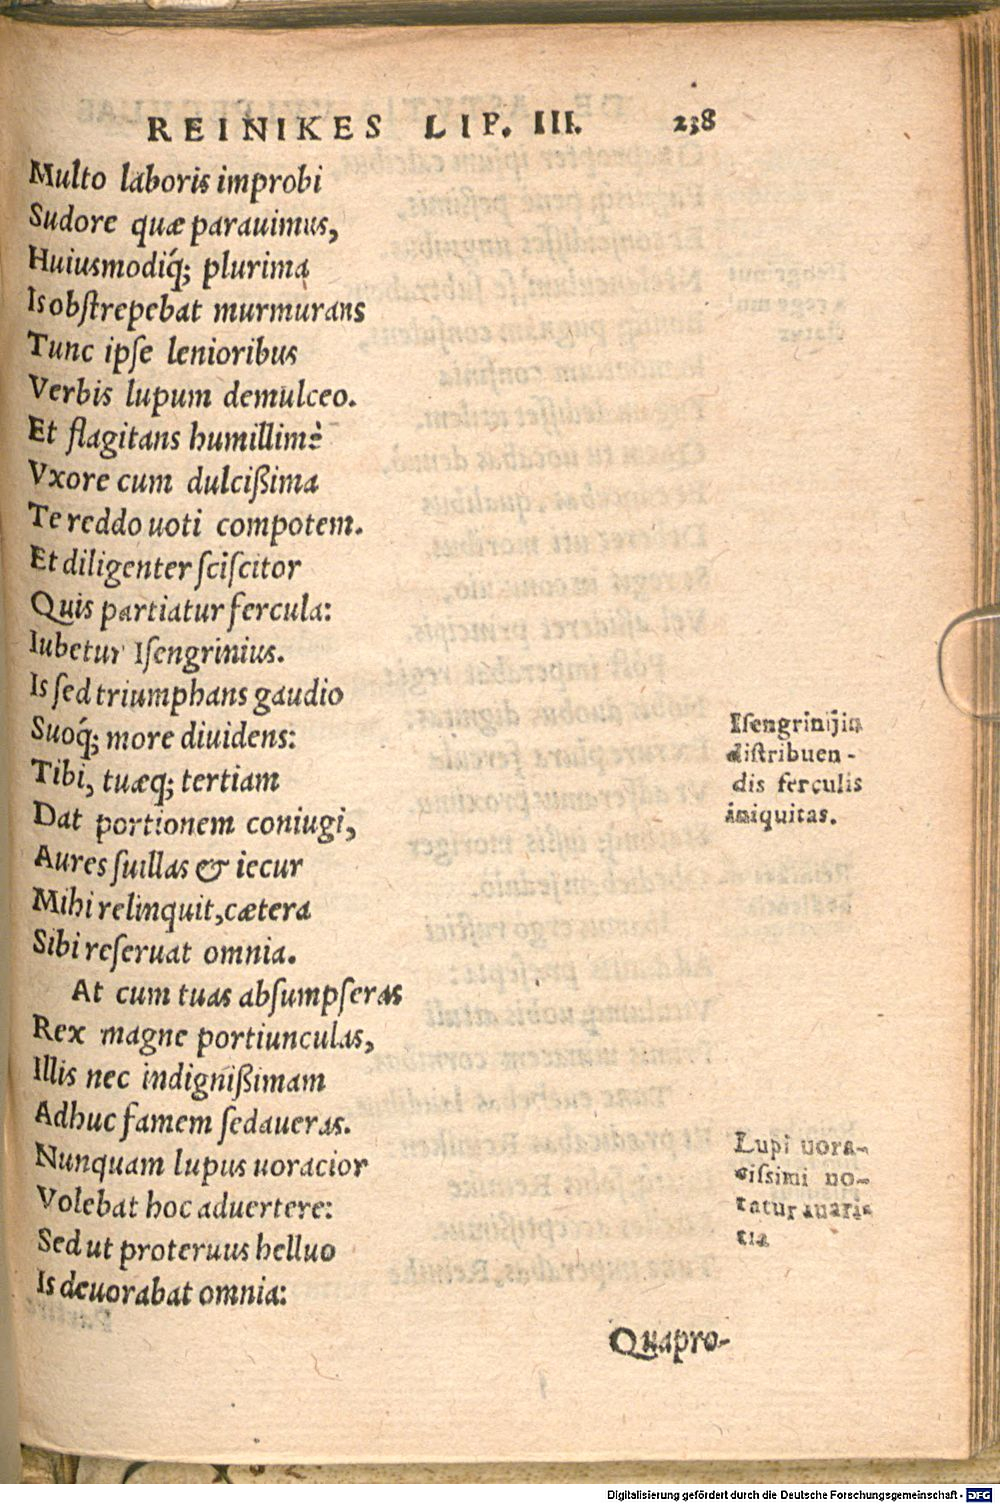 REINIKES LIP. III. 238
Multo laboris improbi
Sudore quæ parauimus,
Huiusmodiq́; plurima
Is obſtrepebat murmurans
Tunc ipſe lenioribus
Verbis lupum demulceo.
Et flagitans humillimè
Vxore cum dulcißima
Te reddo uoti compotem.
Et diligenter ſciſcitor
Quis partiatur fercula:
Iubetur Iſengrinius.
Is ſed triumphans gaudio
Suoq́; more diuidens:
Tibi, tuæq; tertiam
Dat portionem coniugi,
Aures ſuillas & iecur
Mihi relinquit, cætera
Sibi reſeruat omnia.
At cum tuas abſumpſeras
Rex magne portiunculas,
Illis nec indignißimam
Adhuc famem ſedaueras.
Nunquam lupus uoracior
Volebat hoc aduertere:
Sed ut proteruus helluo
Is deuorabat omnia:
Iſengrinij in
diſtribuen-
dis ferculis
iniquitas.
Lupi uora-
ciſſimi no-
tatur auari-
tia
Quapro-
Digitalisierung gefördert durch die Deutsche Forschungsgemeinschaft - DFG